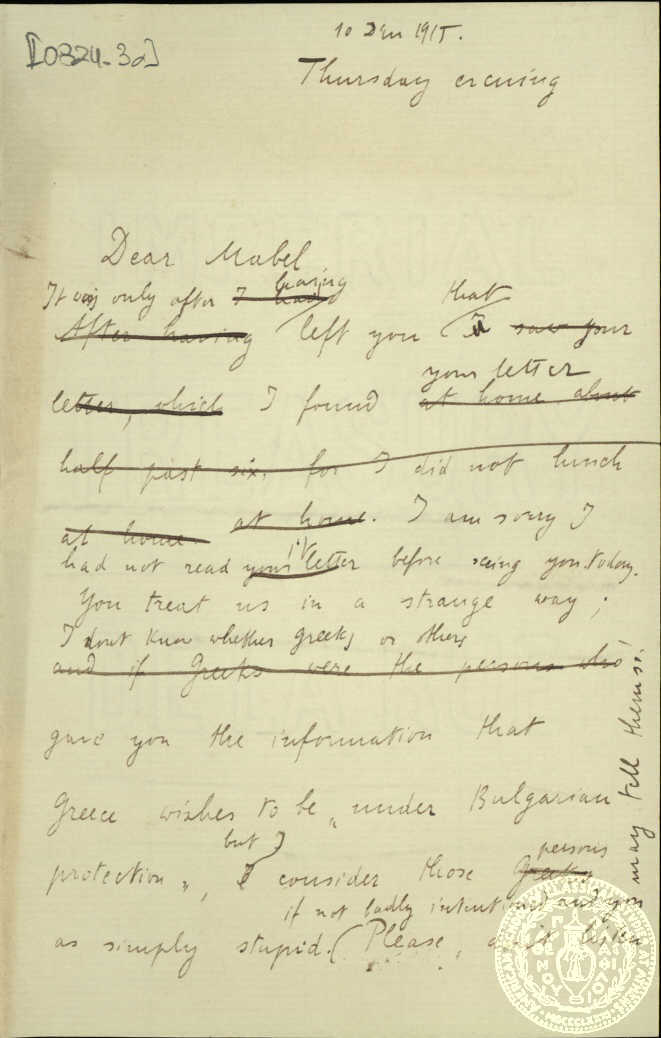 [0324-30]
10 Dec 1915.
Thursday evening
Dear Mabel
It was only after I had having that
After having left you I saw your
your letter
letter, which I found at home about
half past six. for I did not lunch
at home at home. I am sorry I
had not read your letter it before seeing you today.
You treat us in a strange way;
I dont know whether greeks or others
and if Greeks were the persons who
gave you the information that
Greece wishes to be "under Bulgarian
but I persons
protection", I consider those Greeks
if not badly intentioned and you
as simply stupid. (Please, don't listen
may tell them so!
AMERICAN SCHOOL OF CLASSICAL STUDIES AT ATHENS
MDCCCLXXXI